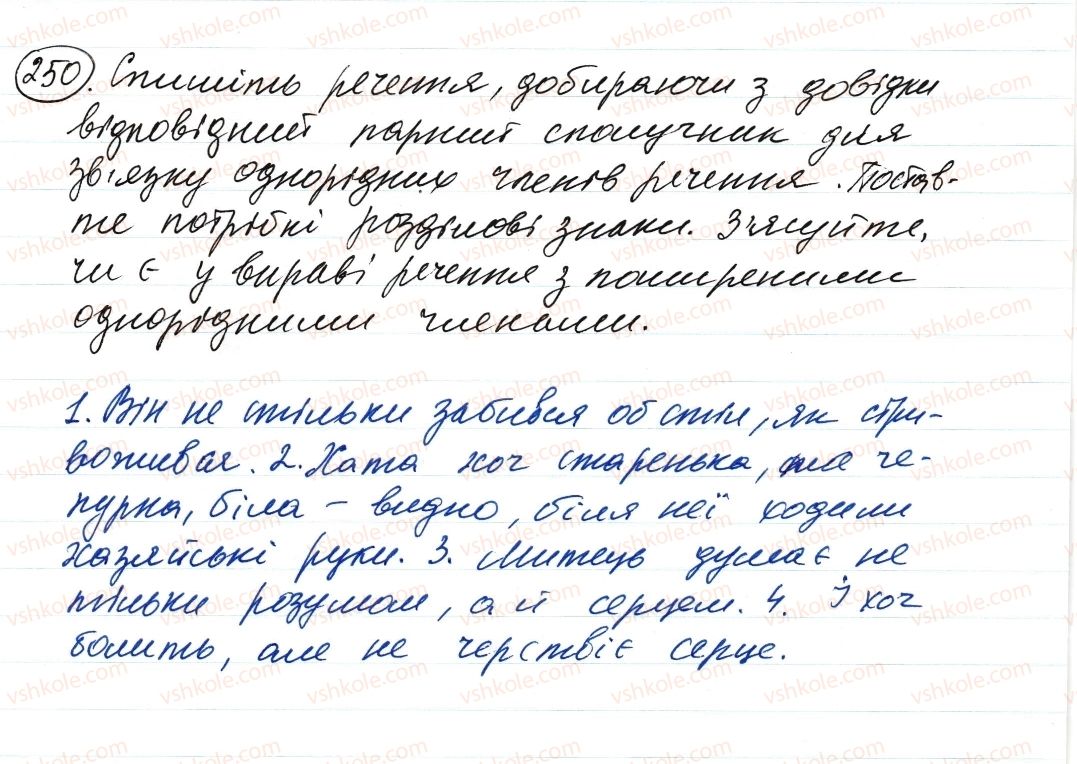 250. Спишіть речення, добираючи з довідки
відповідний парний сполучник для
зв'язку однорідних членів речення. Постав-
те потрібні розділові знаки. З'ясуйте,
чи є у вправі речення з поширеними
однорідними членами.
1. Він не стільки забився об стіл, як стри-
вожився. 2. Хата хоч старенька, але че-
пурна, біла - видно, біля неї ходили
хазяйські руки. 3. Митець думає не
тільки розумом, а й серцем. 4. І хоч
болить, але не черствіє серце.